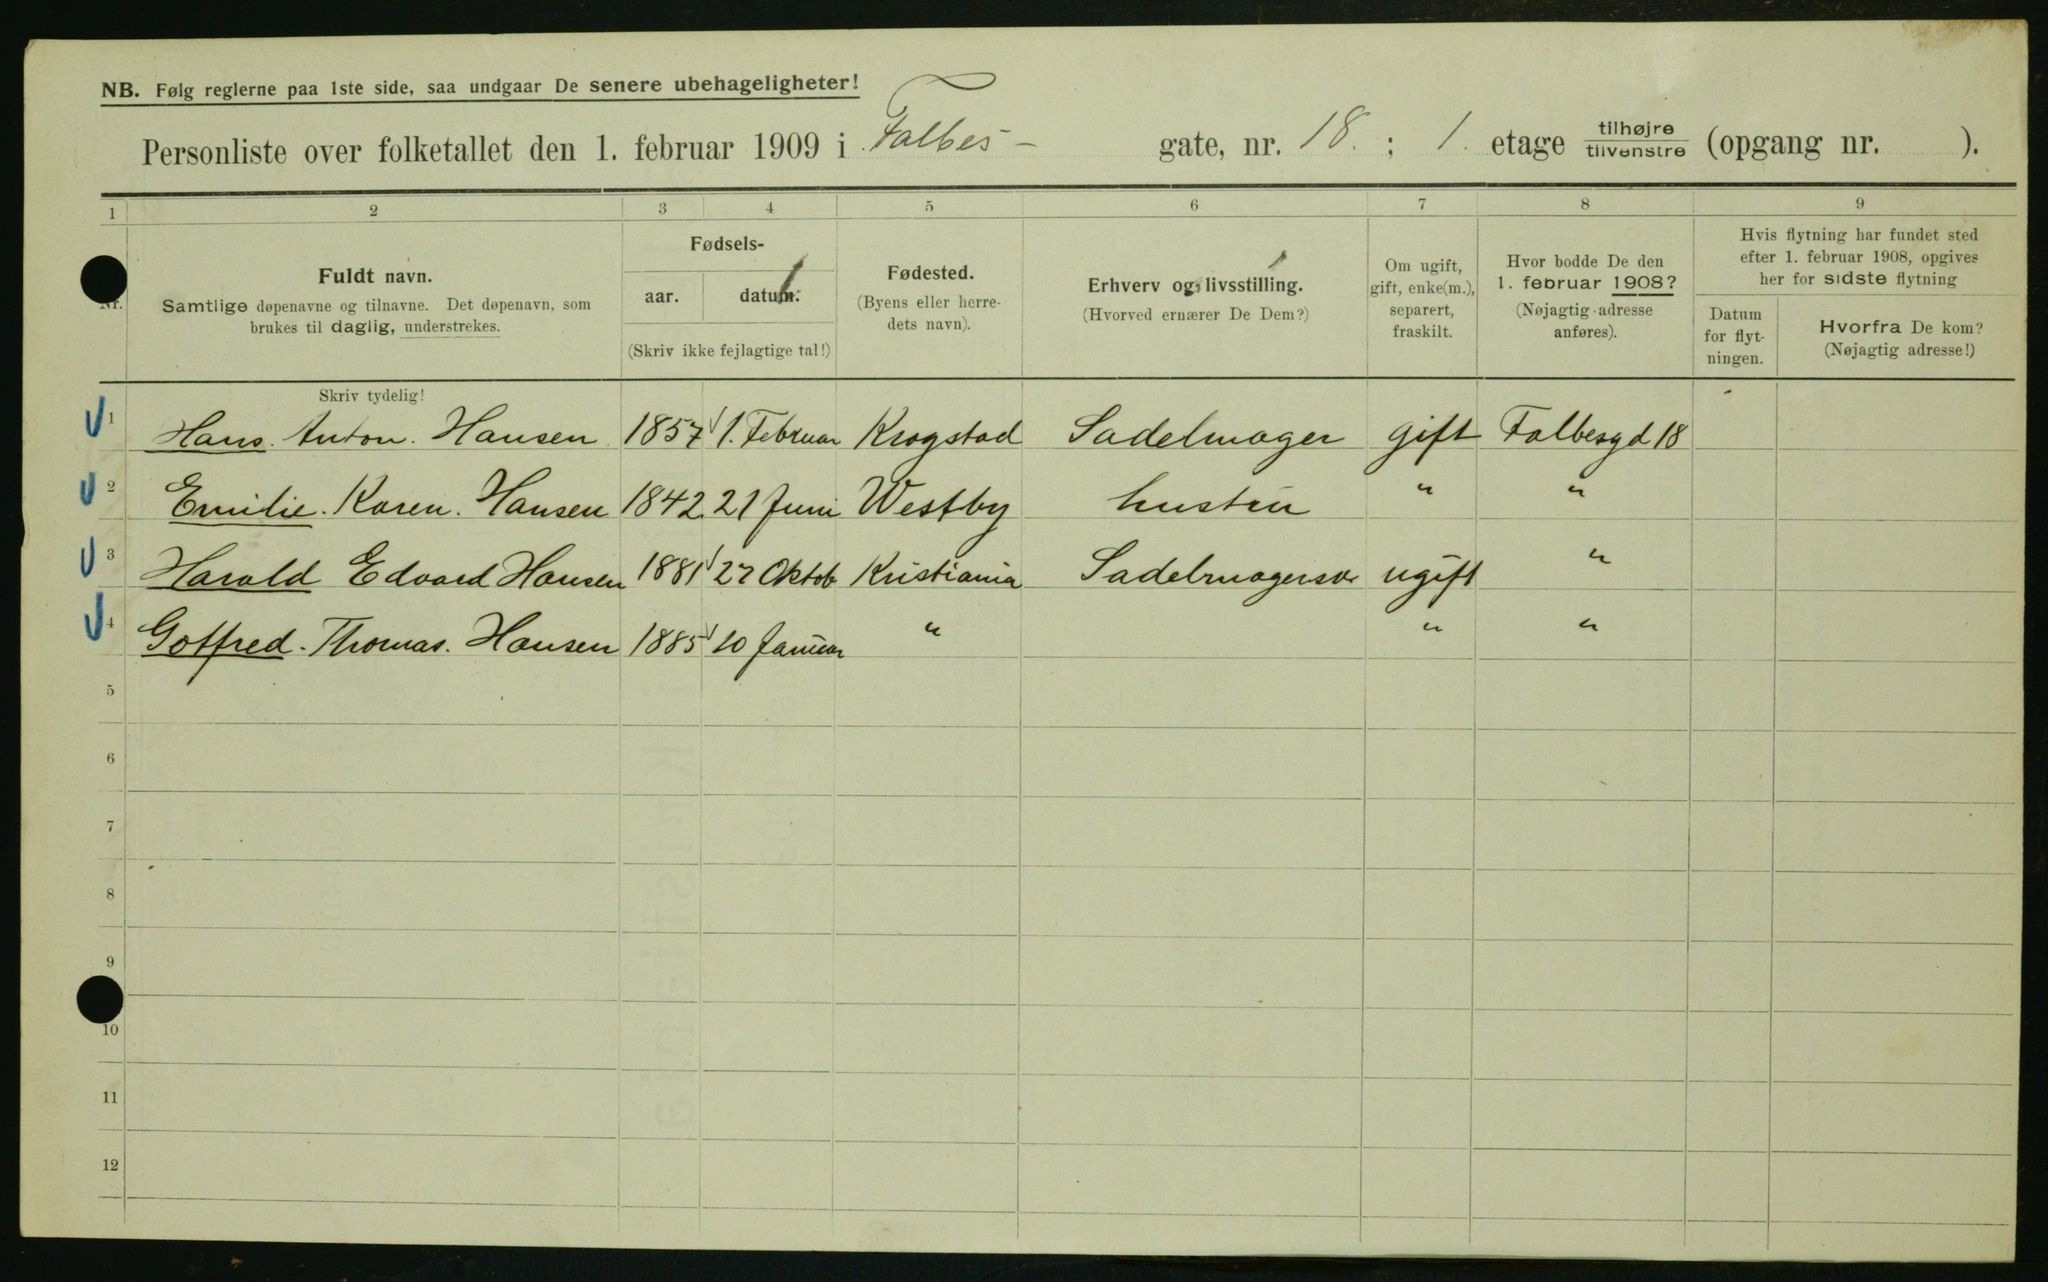 NB. Følg reglerne paa 1ste side, saa undgaar De senere ubehageligheter!
Personliste over folketallet den 1. februar 1909 i Falbes- gate, nr. 18. ; 1. etage tilhøjre/tilvenstre (opgang nr. ).
1 2 3 4 5 6 7 8 9
Nr.
Fuldt navn.
Samtlige døpenavne og tilnavne. Det døpenavn, som
brukes til daglig, understrekes.
Fødsels-
aar. datum.
(Skriv ikke fejlagtige tal!)
Fødested.
(Byens eller herre-
dets navn).
Erhverv og livsstilling.
(Hvorved ernærer De Dem?)
Om ugift,
gift, enke(m.),
separert,
fraskilt.
Hvor bodde De den
1. februar 1908?
(Nøjagtig adresse
anføres).
Hvis flytning har fundet sted
efter 1. februar 1908, opgives
her for sidste flytning
Datum
for flyt-
ningen.
Hvorfra De kom?
(Nøjagtig adresse!)
Skriv tydelig!
1 Hans. Anton. Hansen 1857 1. Februar Krogstad Sadelmager gift Falbesgd 18
2 Emilie. Karen. Hansen 1842 21 Juni Westby hustru " "
3 Harald Edvard Hansen 1881 27 Oktob Kristiania Sadelmagersv. ugift "
4 Gotfred. Thomas. Hansen 1885 10 Januar " " "
5
6
7
8
9
10
11
12